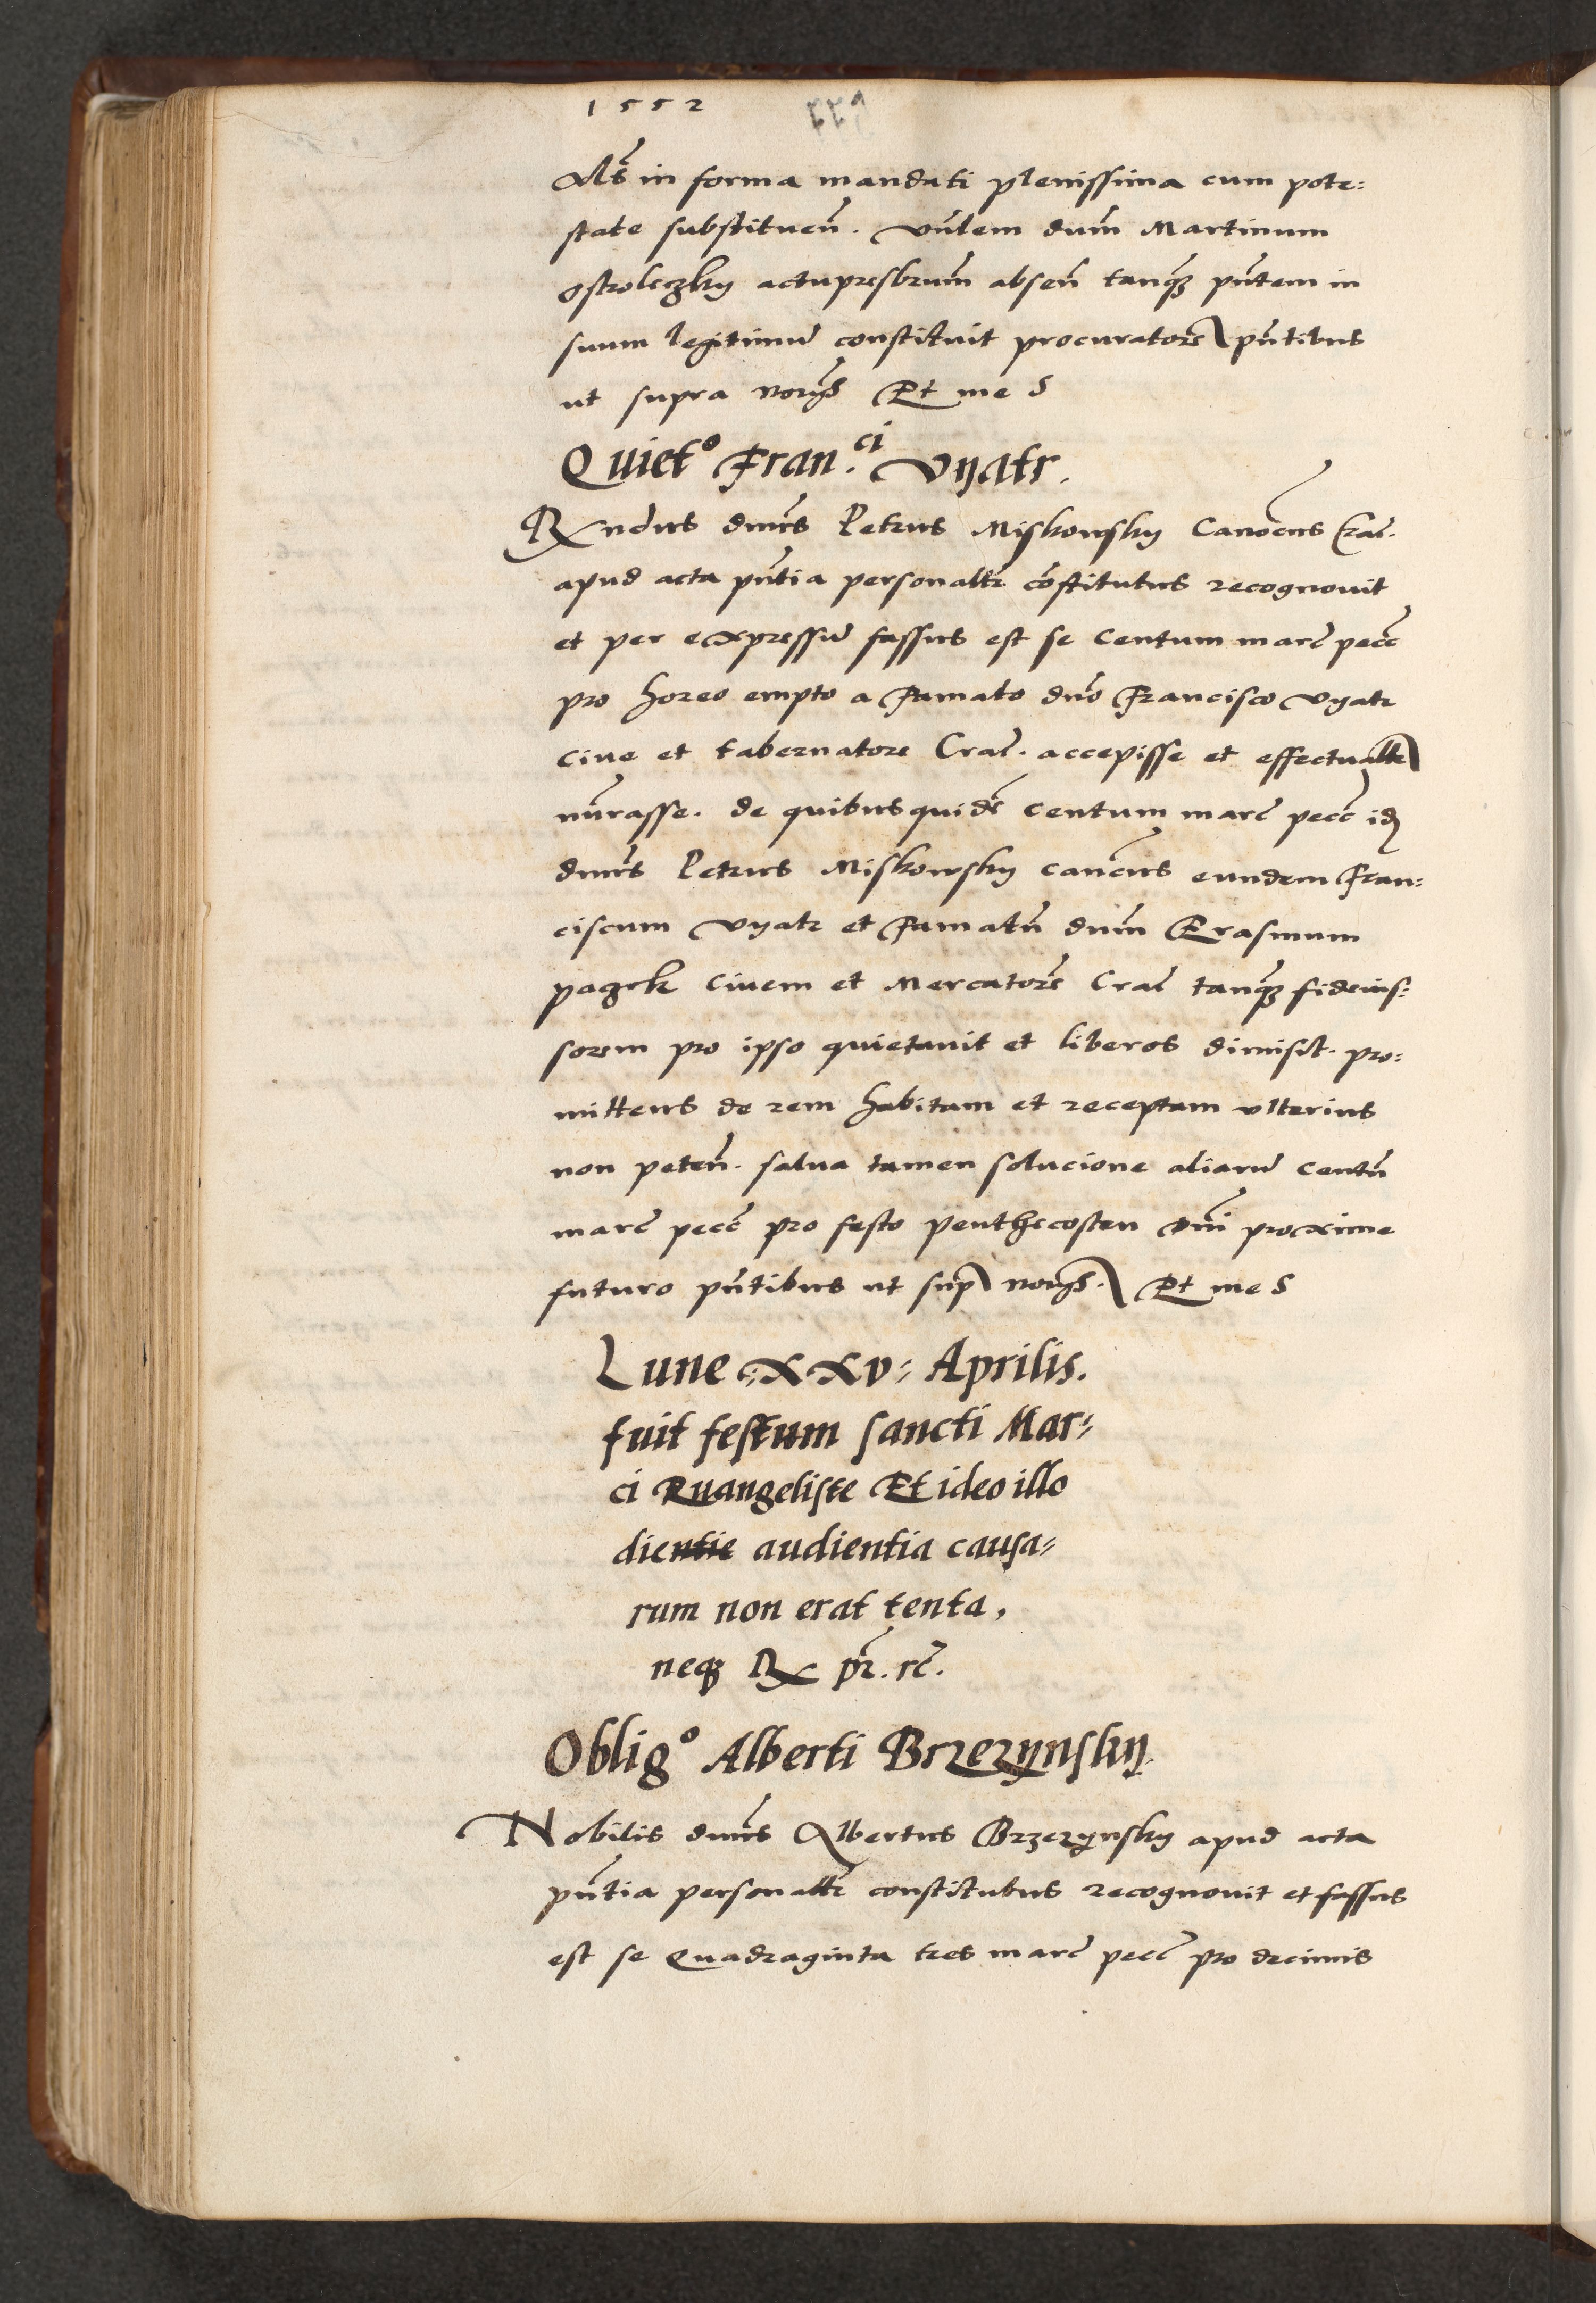 1552
Als̃ in forma mandati plenissima cum pote:
state substituen̄. Vn̄lem dum̄ Martinum
Ostroleczky actupresbrum̄ absen̄ tanq̃ pn̄tem in
suum legitimū constituit procuratorē pn̄tibus
ut supra Et me S
Quiet° Fran.ci Vyatr.
Rndus dnūs Petrus Miskowsky Canōcus Crac̄.
apud acta pn̄tia personalit̄r cōstitutus recognouit
et per expressū fassus est se Centum marc̄ pecc̄
pro horeo empto a Famato dn̄o Francisco Vyatr
Ciue et tabernatore Crac̄. accepisse et effectualit̄r
nūrasse. de quibusquidē Centum marc̄ pecc̄ id
dnūs Petrus Miskowsky Canōcus eundem Fran:
ciscum Vyatr et Famatū dum̄ Erasmum
pagek Ciuem et Mercatorē Crac̄ tanq̃ fideius:
sorem pro ipso quietauit et liberos dimisit. pro:
mittens de rem habitam et receptam vlterius
non peten̄. salua tamen solucione aliarū centū
marc̄ pecc̄ pro festo penthecosten proxime
futuro pn̄tibus ut sup̄ Et me S
Lune xxv: Aprilis.
fuit festum sancti Mar:
ci Euangeliste Et ideo illo
dientie audientia causa:
rum non erat tenta,
neq̃ Rx pr̄. rc̄.
Oblig° Alberti Brzezynsky.
Nobilis dnūs Albertus Brzezynsky apud acta
pn̄tia personalit̄r constitutus recognouit et fassus
est se Quadraginta tres marc̄ pecc̄ pro decimis